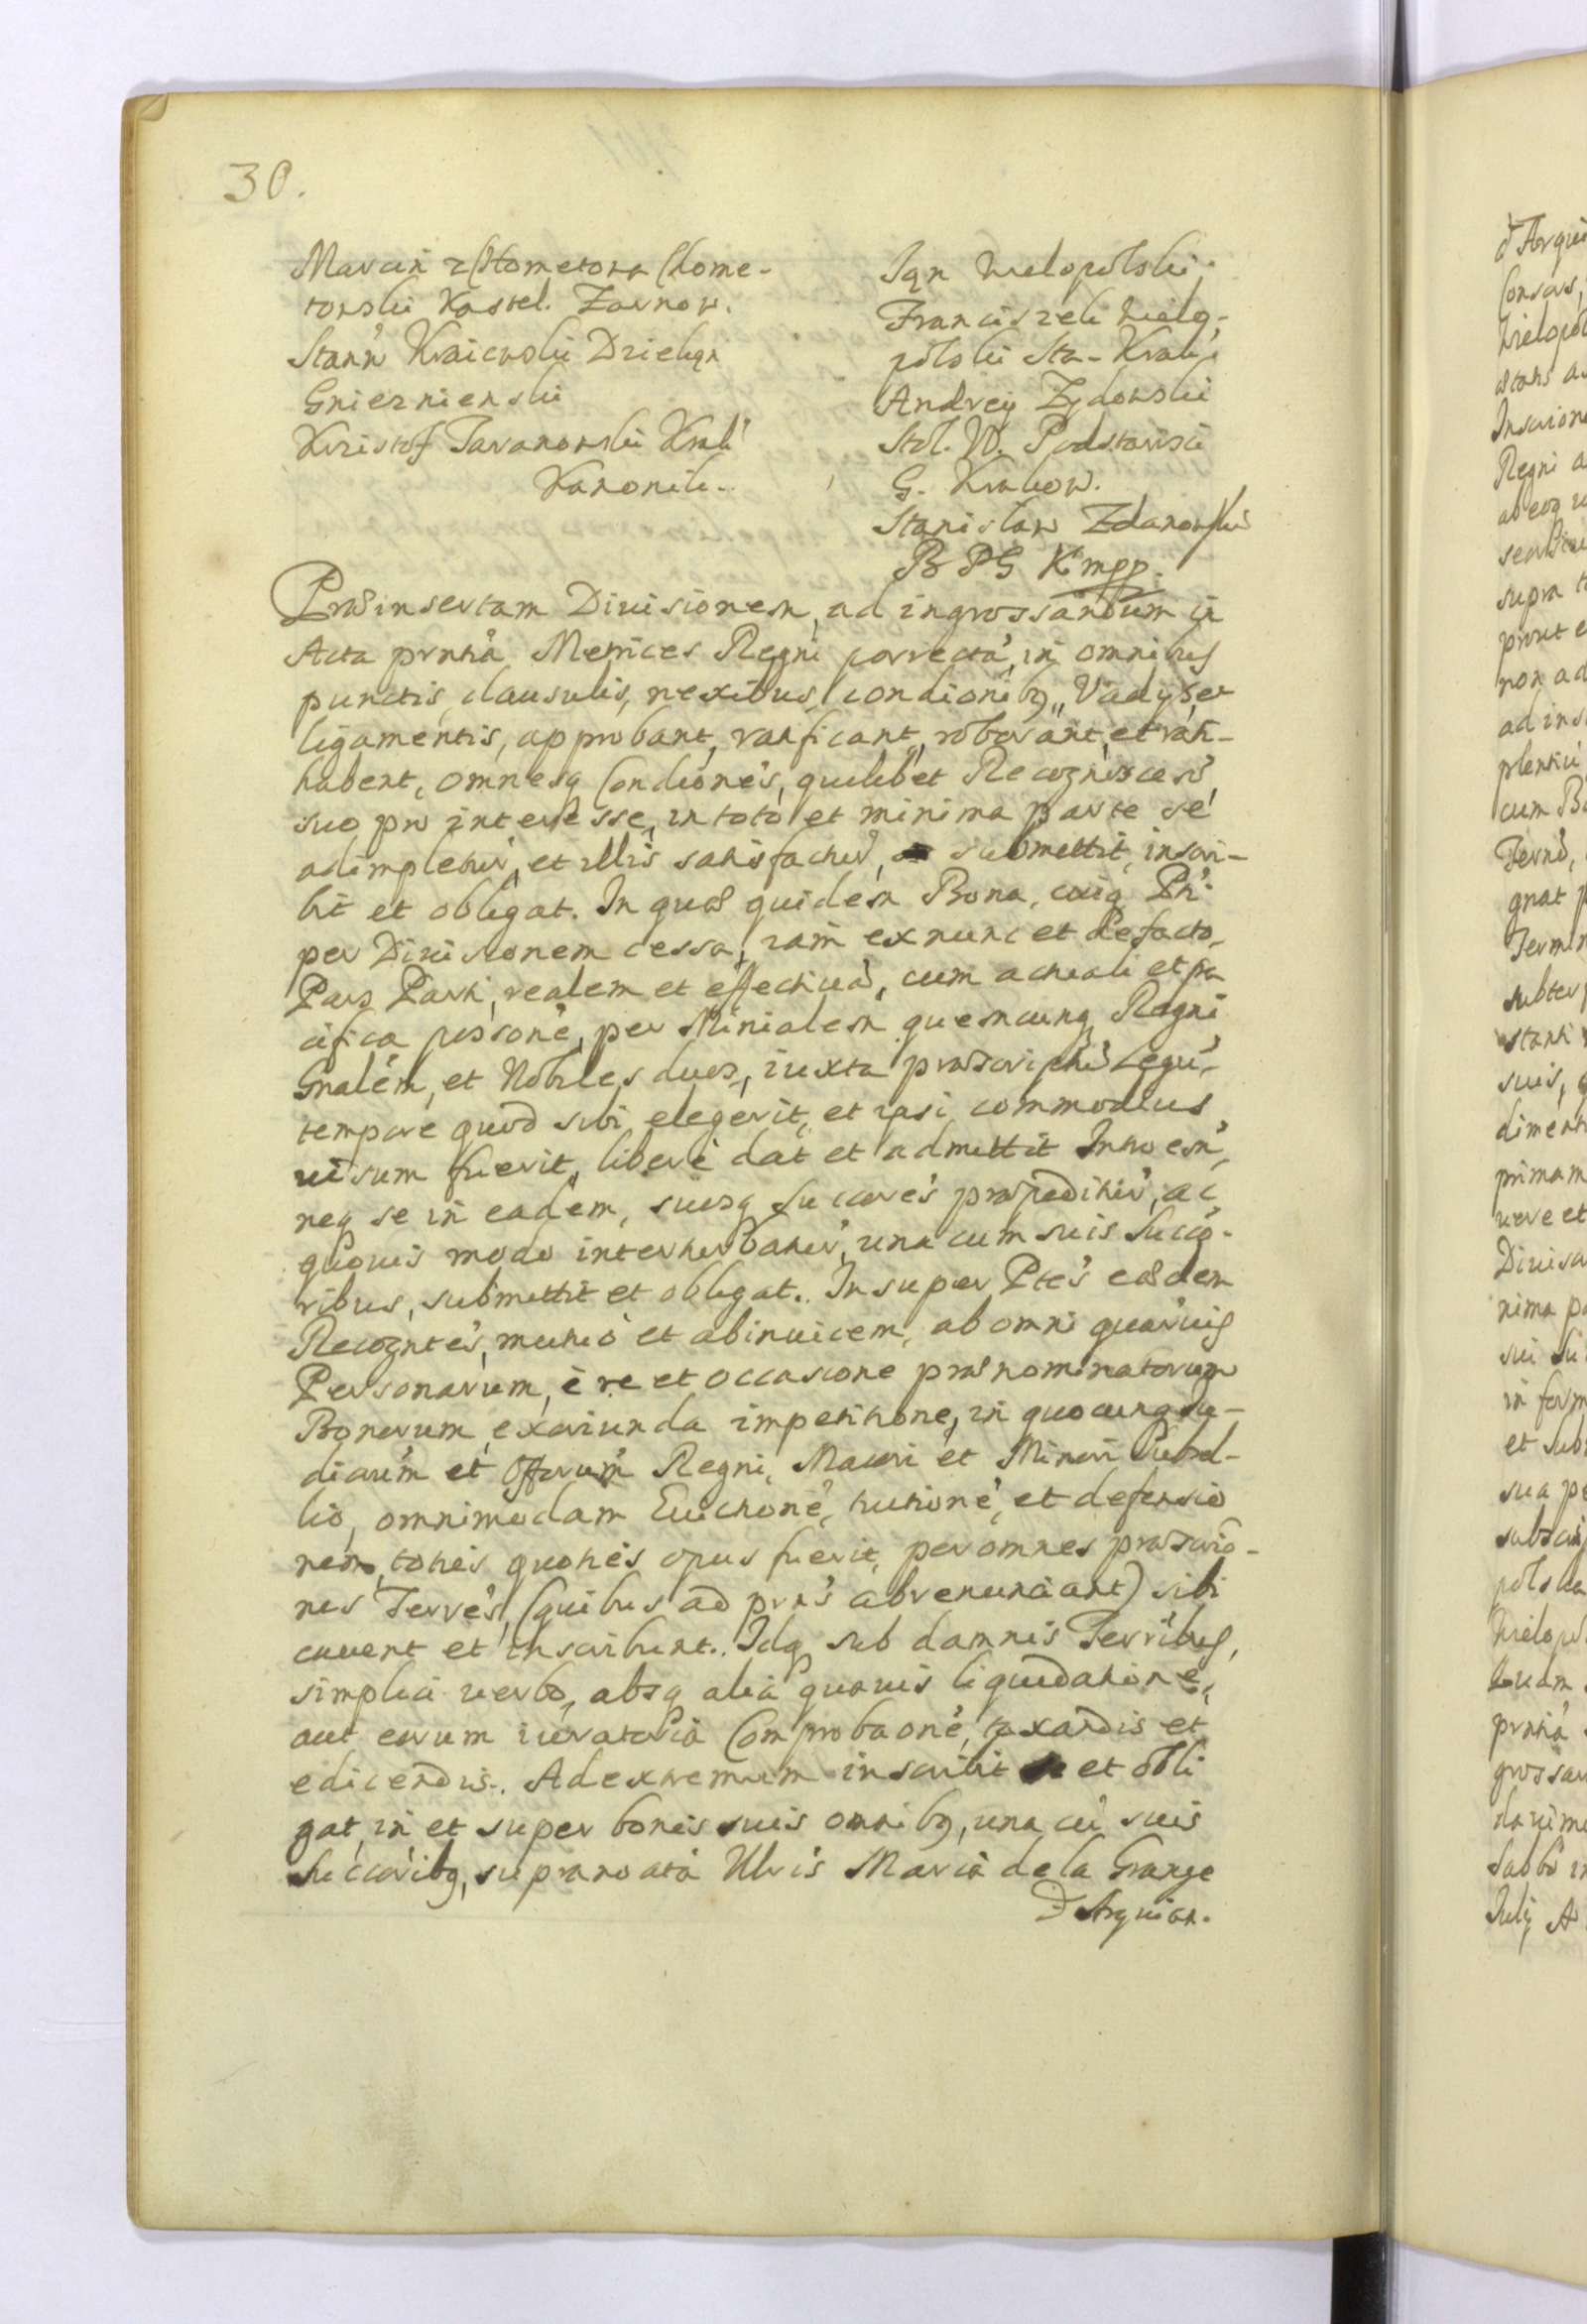 30.
Marcin z Chometowa Chome-
towski Kastel. Zarnow.
Stanῳ Kraiewski Dziekan
Gnieznienski
Krzistof Taranowski Krak
Kanonik.
Jan Wielopolski
Franciszek Wielo-
polski Sta. Krak.
Andrey Zydowski
Stol. W. Podstarosci
G. Krakow.
Stanislaw Zdanowski
B P G K mpp.
Præinsertam Divisionem, ad ingrossandum in
Acta prntia Metrices Regni porrectã, in omnibus
punctis, clausulis, nexibus, condionibq, Vadys, et
ligamentis, approbant, ratificant, roborant, et rati-
habent, omnesq Condiones, quilibet Recognoscens,
suo pro interesse, in toto et minima parte se
adimpletur, et illis satisfactur, submittit, inscri-
bit et obligat. In quæ quidem Bona, cuiq Pti
per Divisionem cessa, iam exnunc et defacto,
Pars Parti, realem et effectivã, cum actuali et pa
cifica possone, per Minialem quemcunq Regni
Gnalem, et Nobiles duos, iuxta præscriptũ Legũ,
tempore quod sibi elegerit, et ipsi commodius
visum fuerit, libere dat et admittit Introem,
neq se in eadem, suosq Succores præpeditur, ac
quovis modo interturbatur, una cum suis Succo-
ribus, submittit et obligat. Insuper Ptes eædem
Recogntes, mutuo et abinvicem, ab omni quarvis
Personarum, è re et occasione prænominatorum
Bonorum, exoriunda impetitione, in quocunq Iu-
diorum et Offorum Regni, Maiori et Minori Subsel-
lio, omnimodam Evictione, tutione, et defensio
nem, toties quoties opus fuerit, per omnes præscrio-
nes Terres, (quibus ad prns abrenunciant) sibi
cavent et inscribunt. Idq sub damnis Terribus,
simplici verbo, absq alia quavis liquidatione,
aut eorum iuratoria Comprobaone, taxandis et
edicendis. Adextremum inscribit et obli
gat, in et super bonis suis omnibq, una cũ suis
Succoribq, supranoata Illris Maria de la Grange
D Arquian.